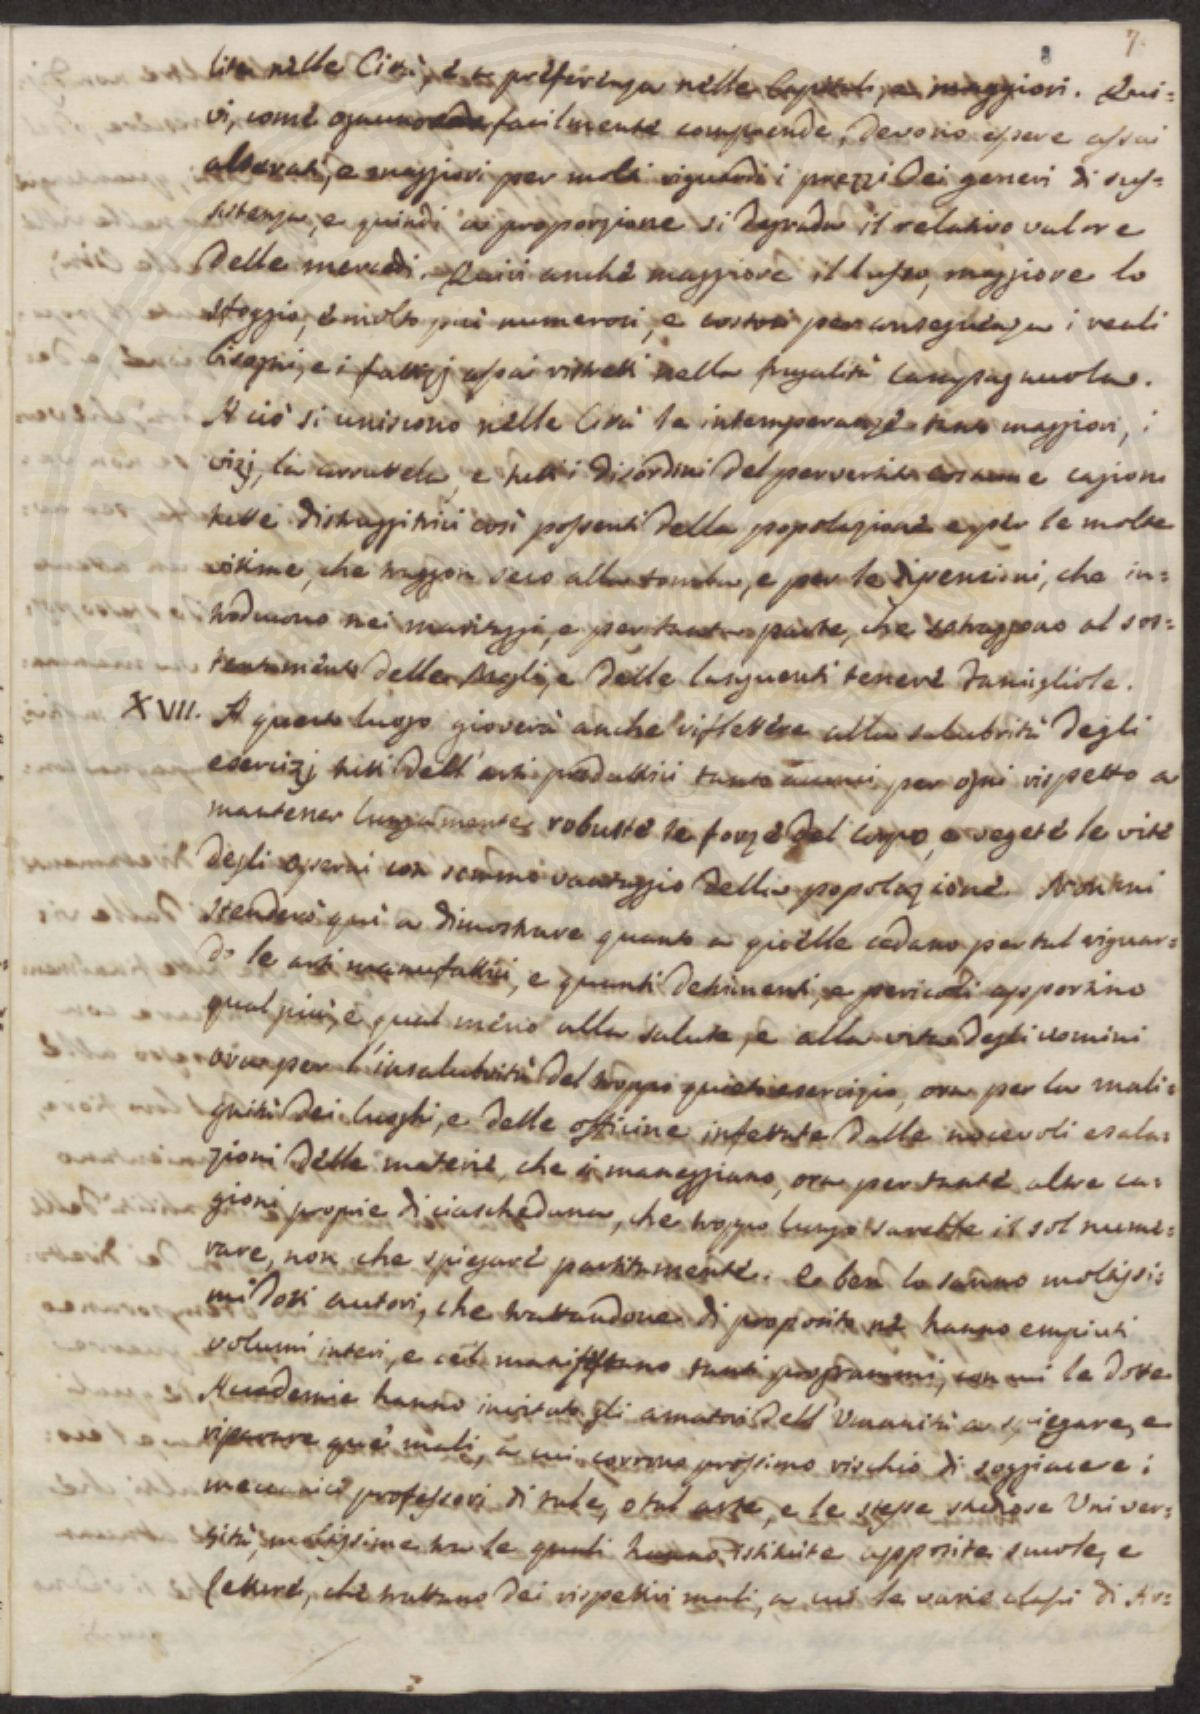 7.
8
lità nelle Città, e a preferenza nelle Capitali, e maggiori. Qui=
vi, come ognuno facilmente comprende, devono essere assai
alterati, e maggiori per molti riguardi i prezzi dei generi di sus=
sistenza, e quindi a proporzione si degrada il relativo valore
delle mercedi. Quivi anche maggiore il lusso, maggiore lo
sfoggio, e molto più numerosi, e costosi per conseguenza i reali
bisogni, e i fattizj assai ristretti nella frugalità Campagnuola.
A ciò si uniscono nelle Città le intemperanze tanto maggiori, i
vizj, la crapula, e tutti i disordini del pervertito costume cagioni
tutte distruggitrici così possenti della popolazione e per le molte
vittime, che traggon seco alla tomba, e per le divisioni, che in=
troducono nei maritaggi, e per tanta parte, che sottraggono al sos=
tentamento delle Mogli, e delle languenti tenere Famigliole.
XVII. A questo luogo gioverà anche riflettere alla salubrità degli
esercizj tutti dell'arti produttrici tanto acconci per ogni rispetto a
mantener lungamente robuste le forze del corpo, e vegete le vite
degli operai con sommo vantaggio della popolazione. Non mi
stenderò quì a dimostrare quanto a quelle cedano per tal riguar=
do le arti manufattrici, e quanti detrimenti, e pericoli apportino
qual più, e qual meno alla salute, e alla vita degli uomini
ora per l'insalubrità del troppo quieto esercizio, ora per la mali=
gnità dei luoghi, e delle officine infettate dalle nocevoli esala=
zioni delle materie, che si maneggiano, ora per tante altre ca=
gioni proprie di ciascheduna, che troppo lungo sarebbe il sol nume=
rare, non che spiegare partitamente. E ben lo sanno moltissi=
mi dotti autori, che trattandone di proposito ne hanno empiuti
volumi interi, e cel manifestano tanti programmi, con cui le dotte
Accademie hanno invitato gli amatori dell'Umanità a spiegare, e
riparare que' mali, a cui corrono prossimo rischio di soggiacere i
meccanici professori di tale, o tal arte, e le stesse studiose Univer=
sità, moltissime tra le quali hanno istituite apposite scuole, e
letture, che trattano dei rispettivi mali, a cui le varie classi di Ar=